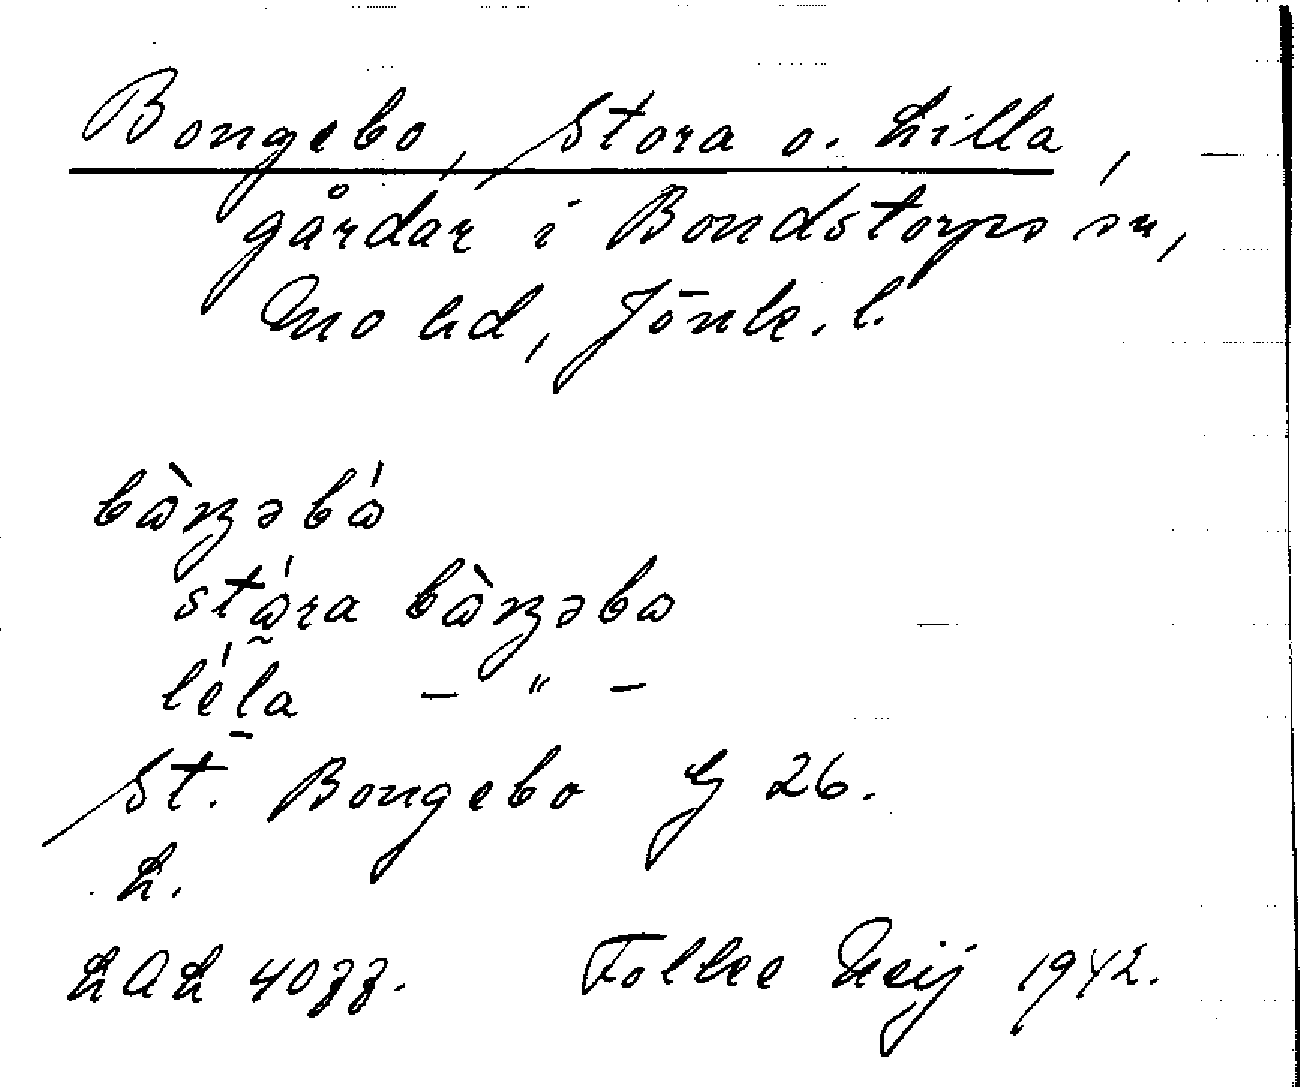 Bongebo, Stora o. Lilla,
gårdar i Bondstorps sn,
Mo hd, Jönk. l.
bɷ̀ŋəbɷ́
stɷ́ra bɷ̀ŋəbɷ
léla — " —
St. Bongebo G 26.
L.
LAL 4077.
Folke Neij 1942.